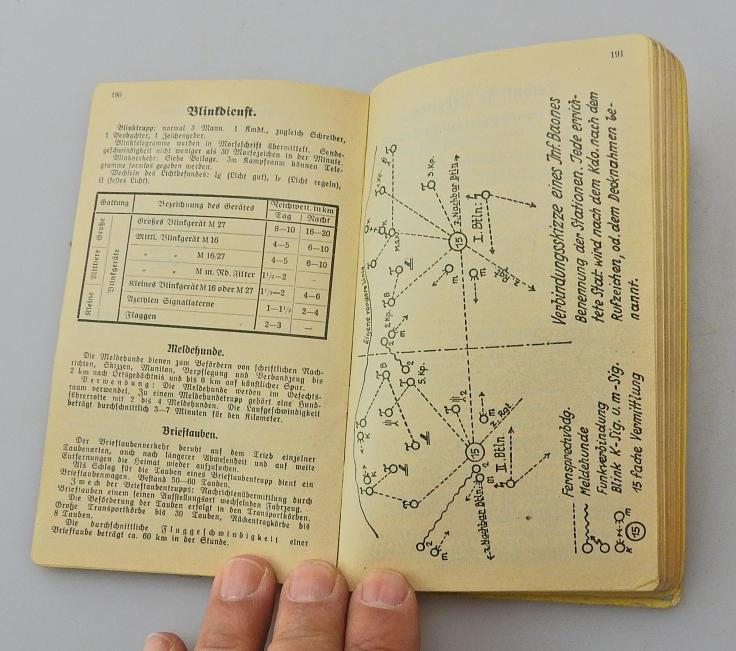 190
Blinkdienst.
Blinktrupp: normal 3 Mann. 1 Kmdt., zugleich Schreiber,
1 Beobachter, 1 Zeichengeber.
Blinktelegramme werden in Morseschrift übermittelt. Sende-
geschwindigkeit nicht weniger als 30 Morsezeichen in der Minute.
Blinkverkehr: Siehe Beilage. Im Kampfraum können Tele-
gramme formlos gegeben werden.
Wechseln des Lichtbefundes: lg (Licht gut), lr (Licht regeln),
fl (festes Licht).
Gattung Bezeichnung des Gerätes Reichweit. in km
Tag Nacht
Große Großes Blinkgerät M 27 8—10 16—20
Mittlere Mittl. Blinkgerät M 16 4—5 6—10
Blinkgeräte
" " M 16/27 4—5 6—10
" " M m. Nd. Filter 1½—2 —
Kleine Kleines Blinkgerät M 16 oder M 27 1½—2 4—6
Azetylen Signallaterne 1—1½ 2—4
Flaggen 2—3 —
Meldehunde.
Die Meldehunde dienen zum Befördern von schriftlichen Nach-
richten, Skizzen, Munition, Verpflegung und Verbandzeug bis
2 km nach Ortsgedächtnis und bis 6 km auf künstlicher Spur.
Verwendung: Die Meldehunde werden im Gefechts-
raum verwendet. Zu einem Meldehundetrupp gehört eine Hund-
führerrotte mit 2 bis 4 Meldehunden. Die Laufgeschwindigkeit
beträgt durchschnittlich 3—7 Minuten für den Kilometer.
Brieftauben.
Der Brieftaubenverkehr beruht auf dem Trieb einzelner
Taubenarten, auch nach längerer Abwesenheit und auf weite
Entfernungen die Heimat wieder aufzusuchen.
Als Schlag für die Tauben eines Brieftaubentrupp dient ein
Brieftaubenwagen. Bestand 50—60 Tauben.
Zweck der Brieftaubentrupps: Nachrichtenübermittlung durch
Brieftauben einem seinen Aufstellungsort wechselnden Fahrzeug.
Die Beförderung der Tauben erfolgt in den Transportkörben.
Große Transportkörbe bis 30 Tauben, Nächentragkörbe bis
8 Tauben.
Die durchschnittliche Fluggeschwindigkeit einer
Brieftaube beträgt ca. 60 km in der Stunde.
191
Verbindungsskizze eines Inf. Baones
Benennung der Stationen. Jede errich-
tete Stat. wird nach dem Kdo. nach dem
Rufzeichen, od. dem Decknahmen be-
nannt.
Eigene vorgez. Linie
3. Kp.
2. Kp.
5. Kp.
2. Nachbar Btln.
I. Btln.
z. Rgt.
II. Btln.
z. Nachbar Btln.
15
15
Fernsprechvbdg.
Meldehunde
Funkverbindung
Blink K-Sig. u. m-Sig.
15 15 fache Vermittlung